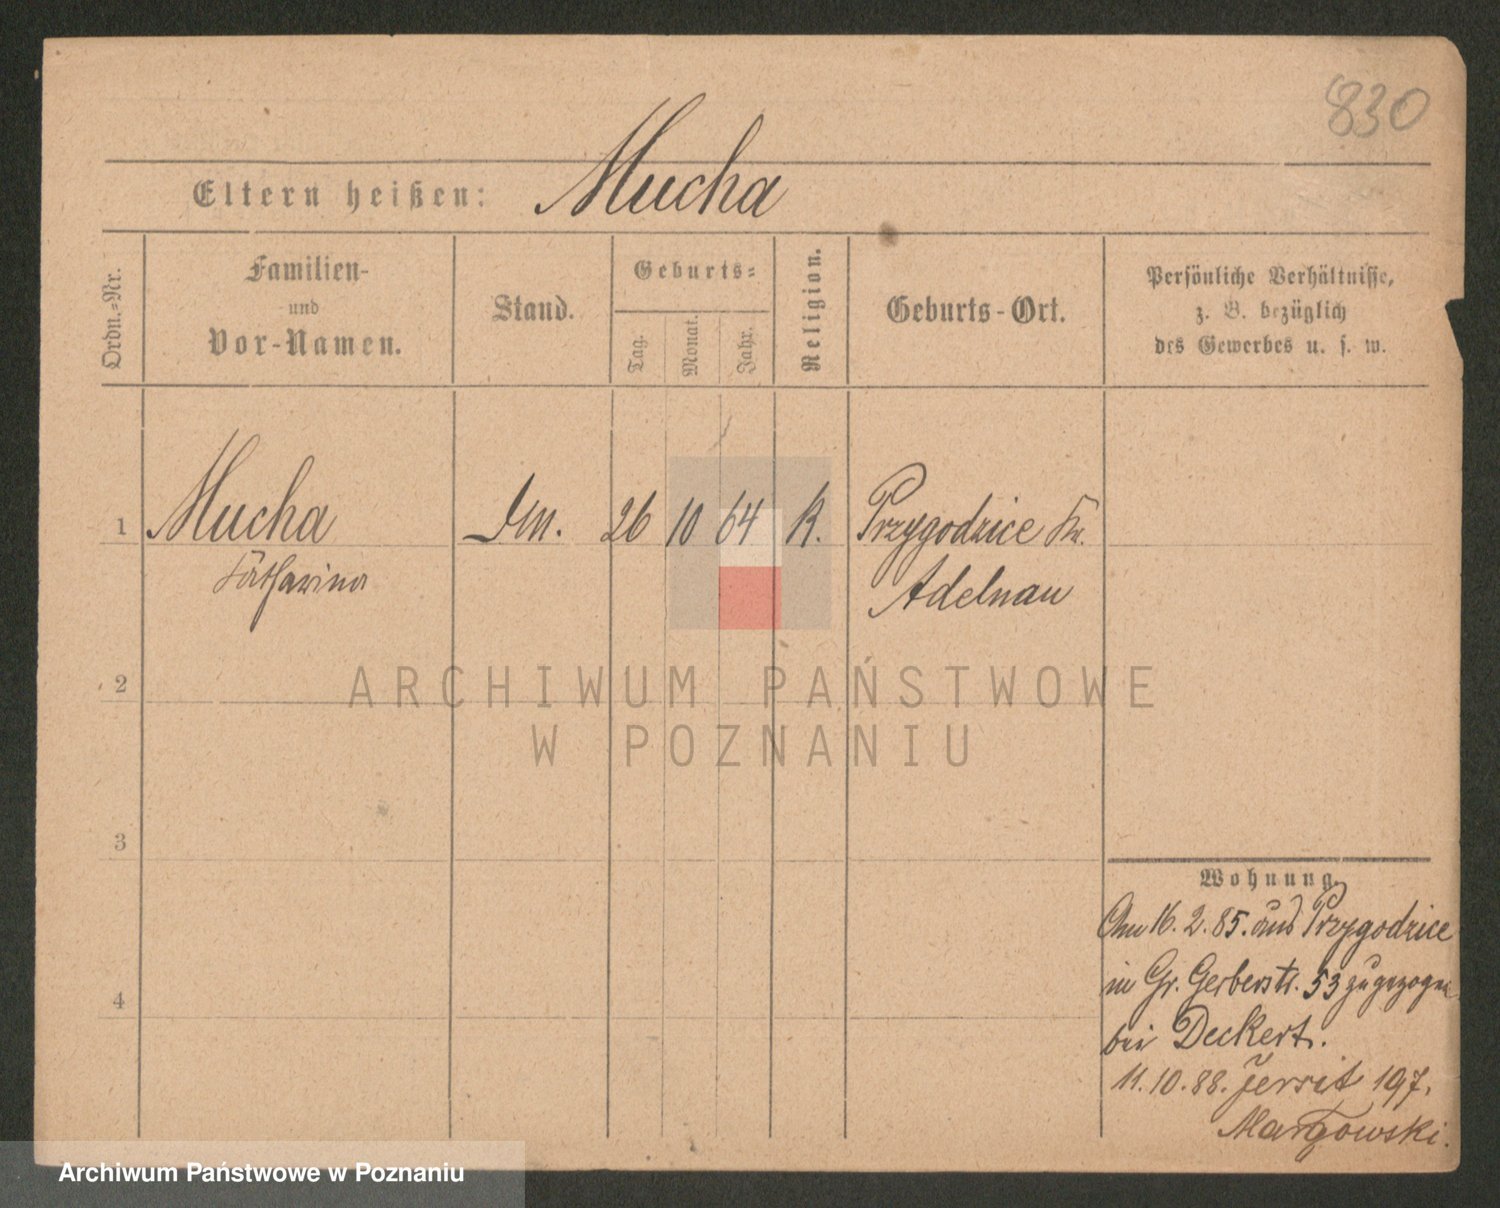 830
Eltern heißen: Mucha
Ordn.-Nr.
Familien-
und
Vor-Namen.
Stand.
Geburts-
Tag.
Monat.
Jahr.
Religion.
Geburts-Ort.
Persönliche Verhältnisse,
z. B. bezüglich
des Gewerbes u. s. w.
1 Mucha 26 10 64 K. Przygodzice Kr.
Katharina Adelnau
2
3
4
Wohnung.
Am 16. 2. 85. aus Przygodzice
in Gr. Gerberstr. 53 zugezogen
bei Deckert.
11. 10. 88. Jersit 197.
ARCHIWUM PAŃSTWOWE
W POZNANIU
Archiwum Państwowe w Poznaniu